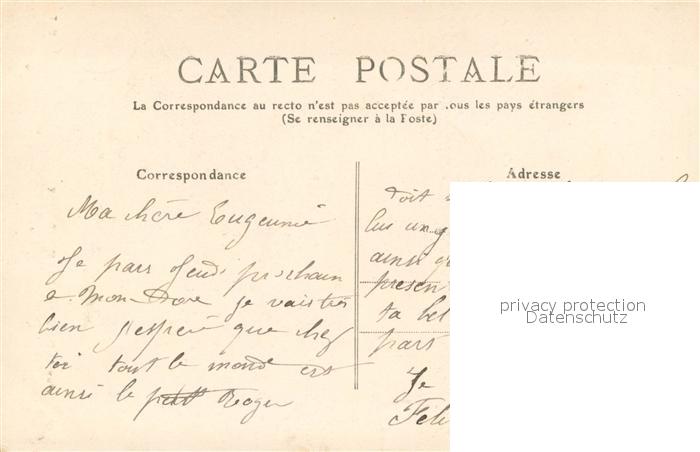 CARTE POSTALE
La Correspondance au recto n'est pas acceptée par tous les pays étrangers
(Se renseigner à la Poste)
Correspondance
Ma chére Eugeunié
Je pars Jeudi prochain
e Mon-Dore je vais trés
bien j'espere que chez
toi tout le monde est
ainsi le petit Roger
Adresse
doit
ainsi
presen
ta bel
part
Je
privacy protection
Datenschutz